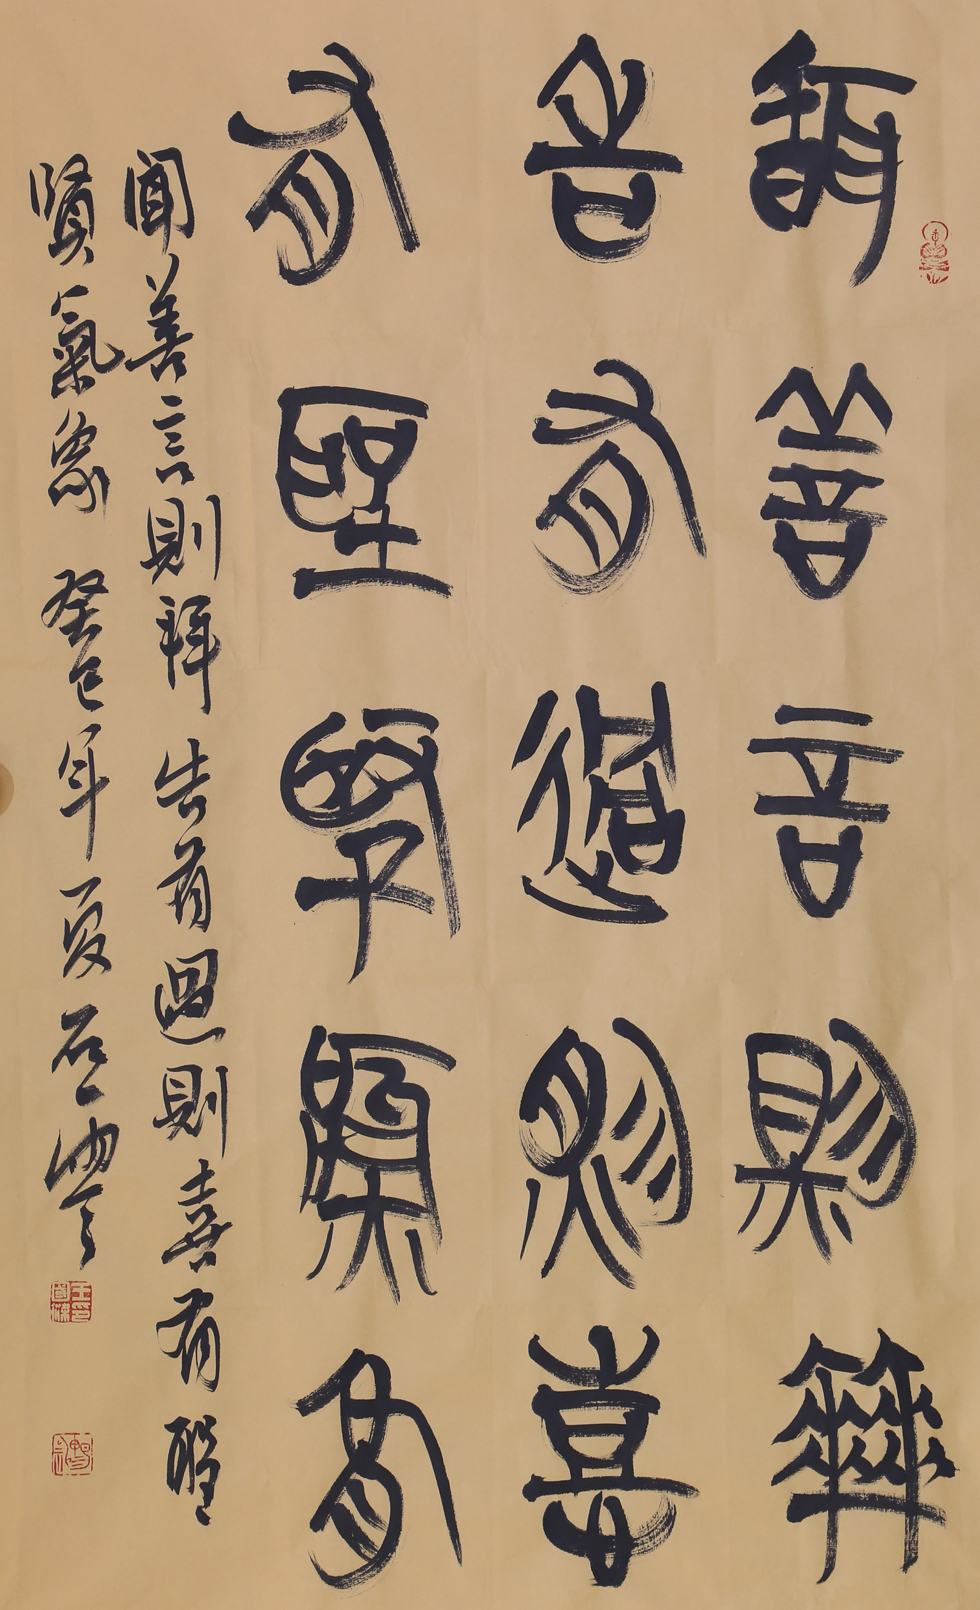 聞善言則拜
告有過則喜
有聖賢氣象
聞善言則拜告有過則喜有聖
賢氣象 癸巳年夏